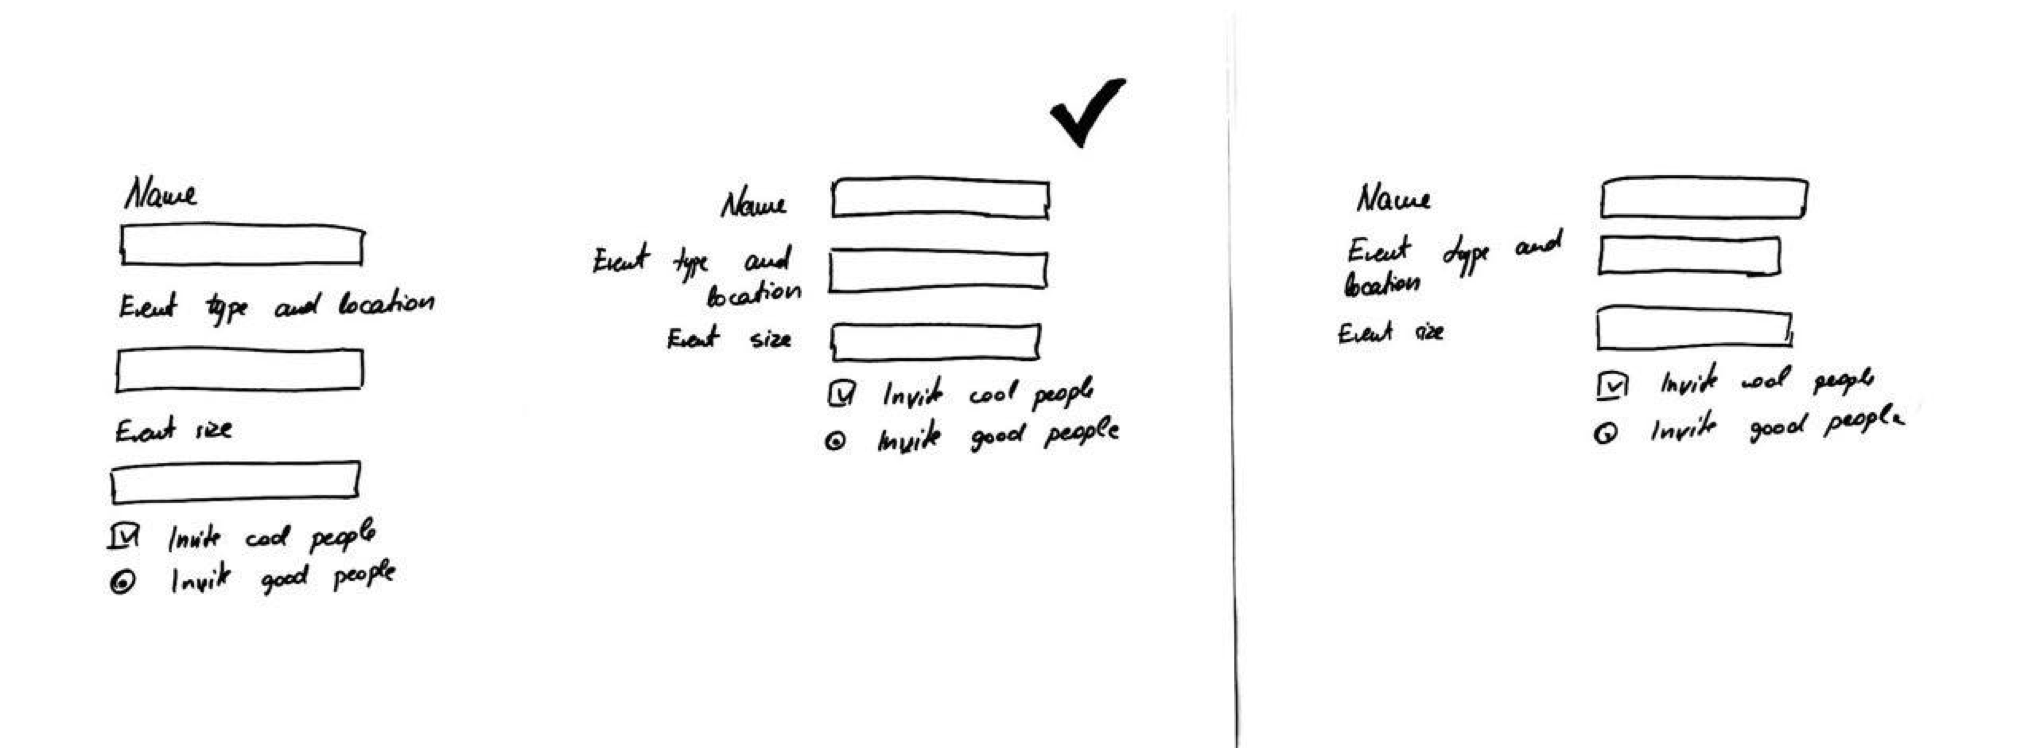 Name
Event type and location
Event size
Invite cool people
Invite good people
Name
Event type and
location
Event size
Invite cool people
Invite good people
Name
Event type and
location
Event size
Invite cool people
Invite good people